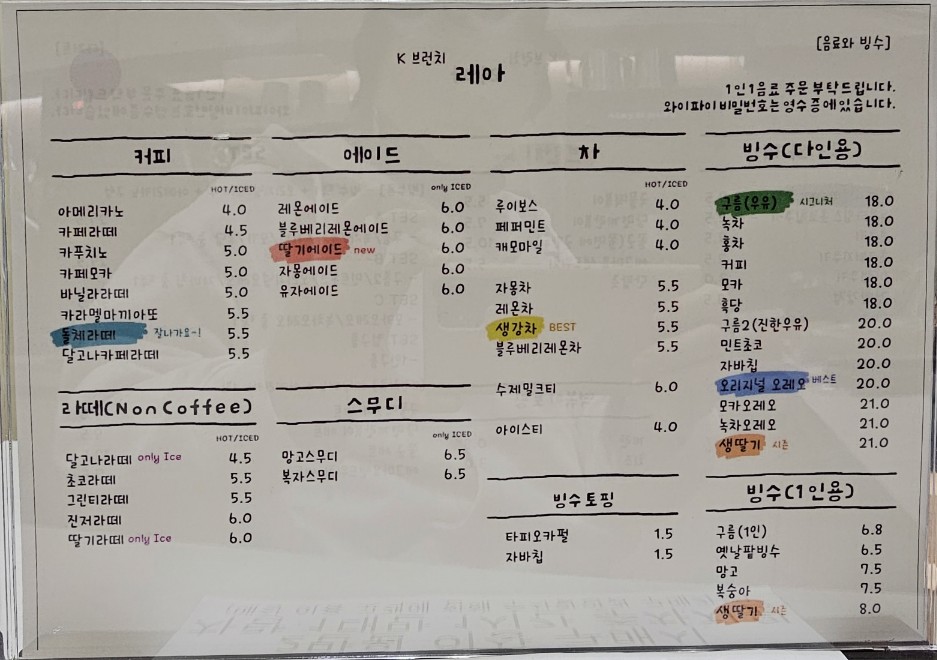 [음료와 빙수]
K 브런치
레아
1인1음료 주문 부탁드립니다.
와이파이 비밀번호는 영수증에 있습니다.
커피
HOT/ICED
아메리카노 4.0
카페라떼 4.5
카푸치노 5.0
카페모카 5.0
바닐라라떼 5.0
카라멜마끼아또 5.5
돌체라떼 잘나가요~! 5.5
달고나카페라떼 5.5
라떼(Non Coffee)
HOT/ICED
달고나라떼 only Ice 4.5
초코라떼 5.5
그린티라떼 5.5
진저라떼 6.0
딸기라떼 only Ice 6.0
에이드
only ICED
레몬에이드 6.0
블루베리레몬에이드 6.0
딸기에이드 new 6.0
자몽에이드 6.0
유자에이드 6.0
스무디
only ICED
망고스무디 6.5
복자스무디 6.5
차
HOT/ICED
루이보스 4.0
페퍼민트 4.0
캐모마일 4.0
자몽차 5.5
레몬차 5.5
생강차 BEST 5.5
블루베리레몬차 5.5
수제밀크티 6.0
아이스티 4.0
빙수토핑
타피오카펄 1.5
자바칩 1.5
빙수(다인용)
구름(우유) 시그니처 18.0
녹차 18.0
홍차 18.0
커피 18.0
모카 18.0
흑당 18.0
구름2(진한우유) 20.0
민트초코 20.0
자바칩 20.0
오리지널 오레오 베스트 20.0
모카오레오 21.0
녹차오레오 21.0
생딸기 시즌 21.0
빙수(1인용)
구름(1인) 6.8
옛날팥빙수 6.5
망고 7.5
복숭아 7.5
생딸기 시즌 8.0